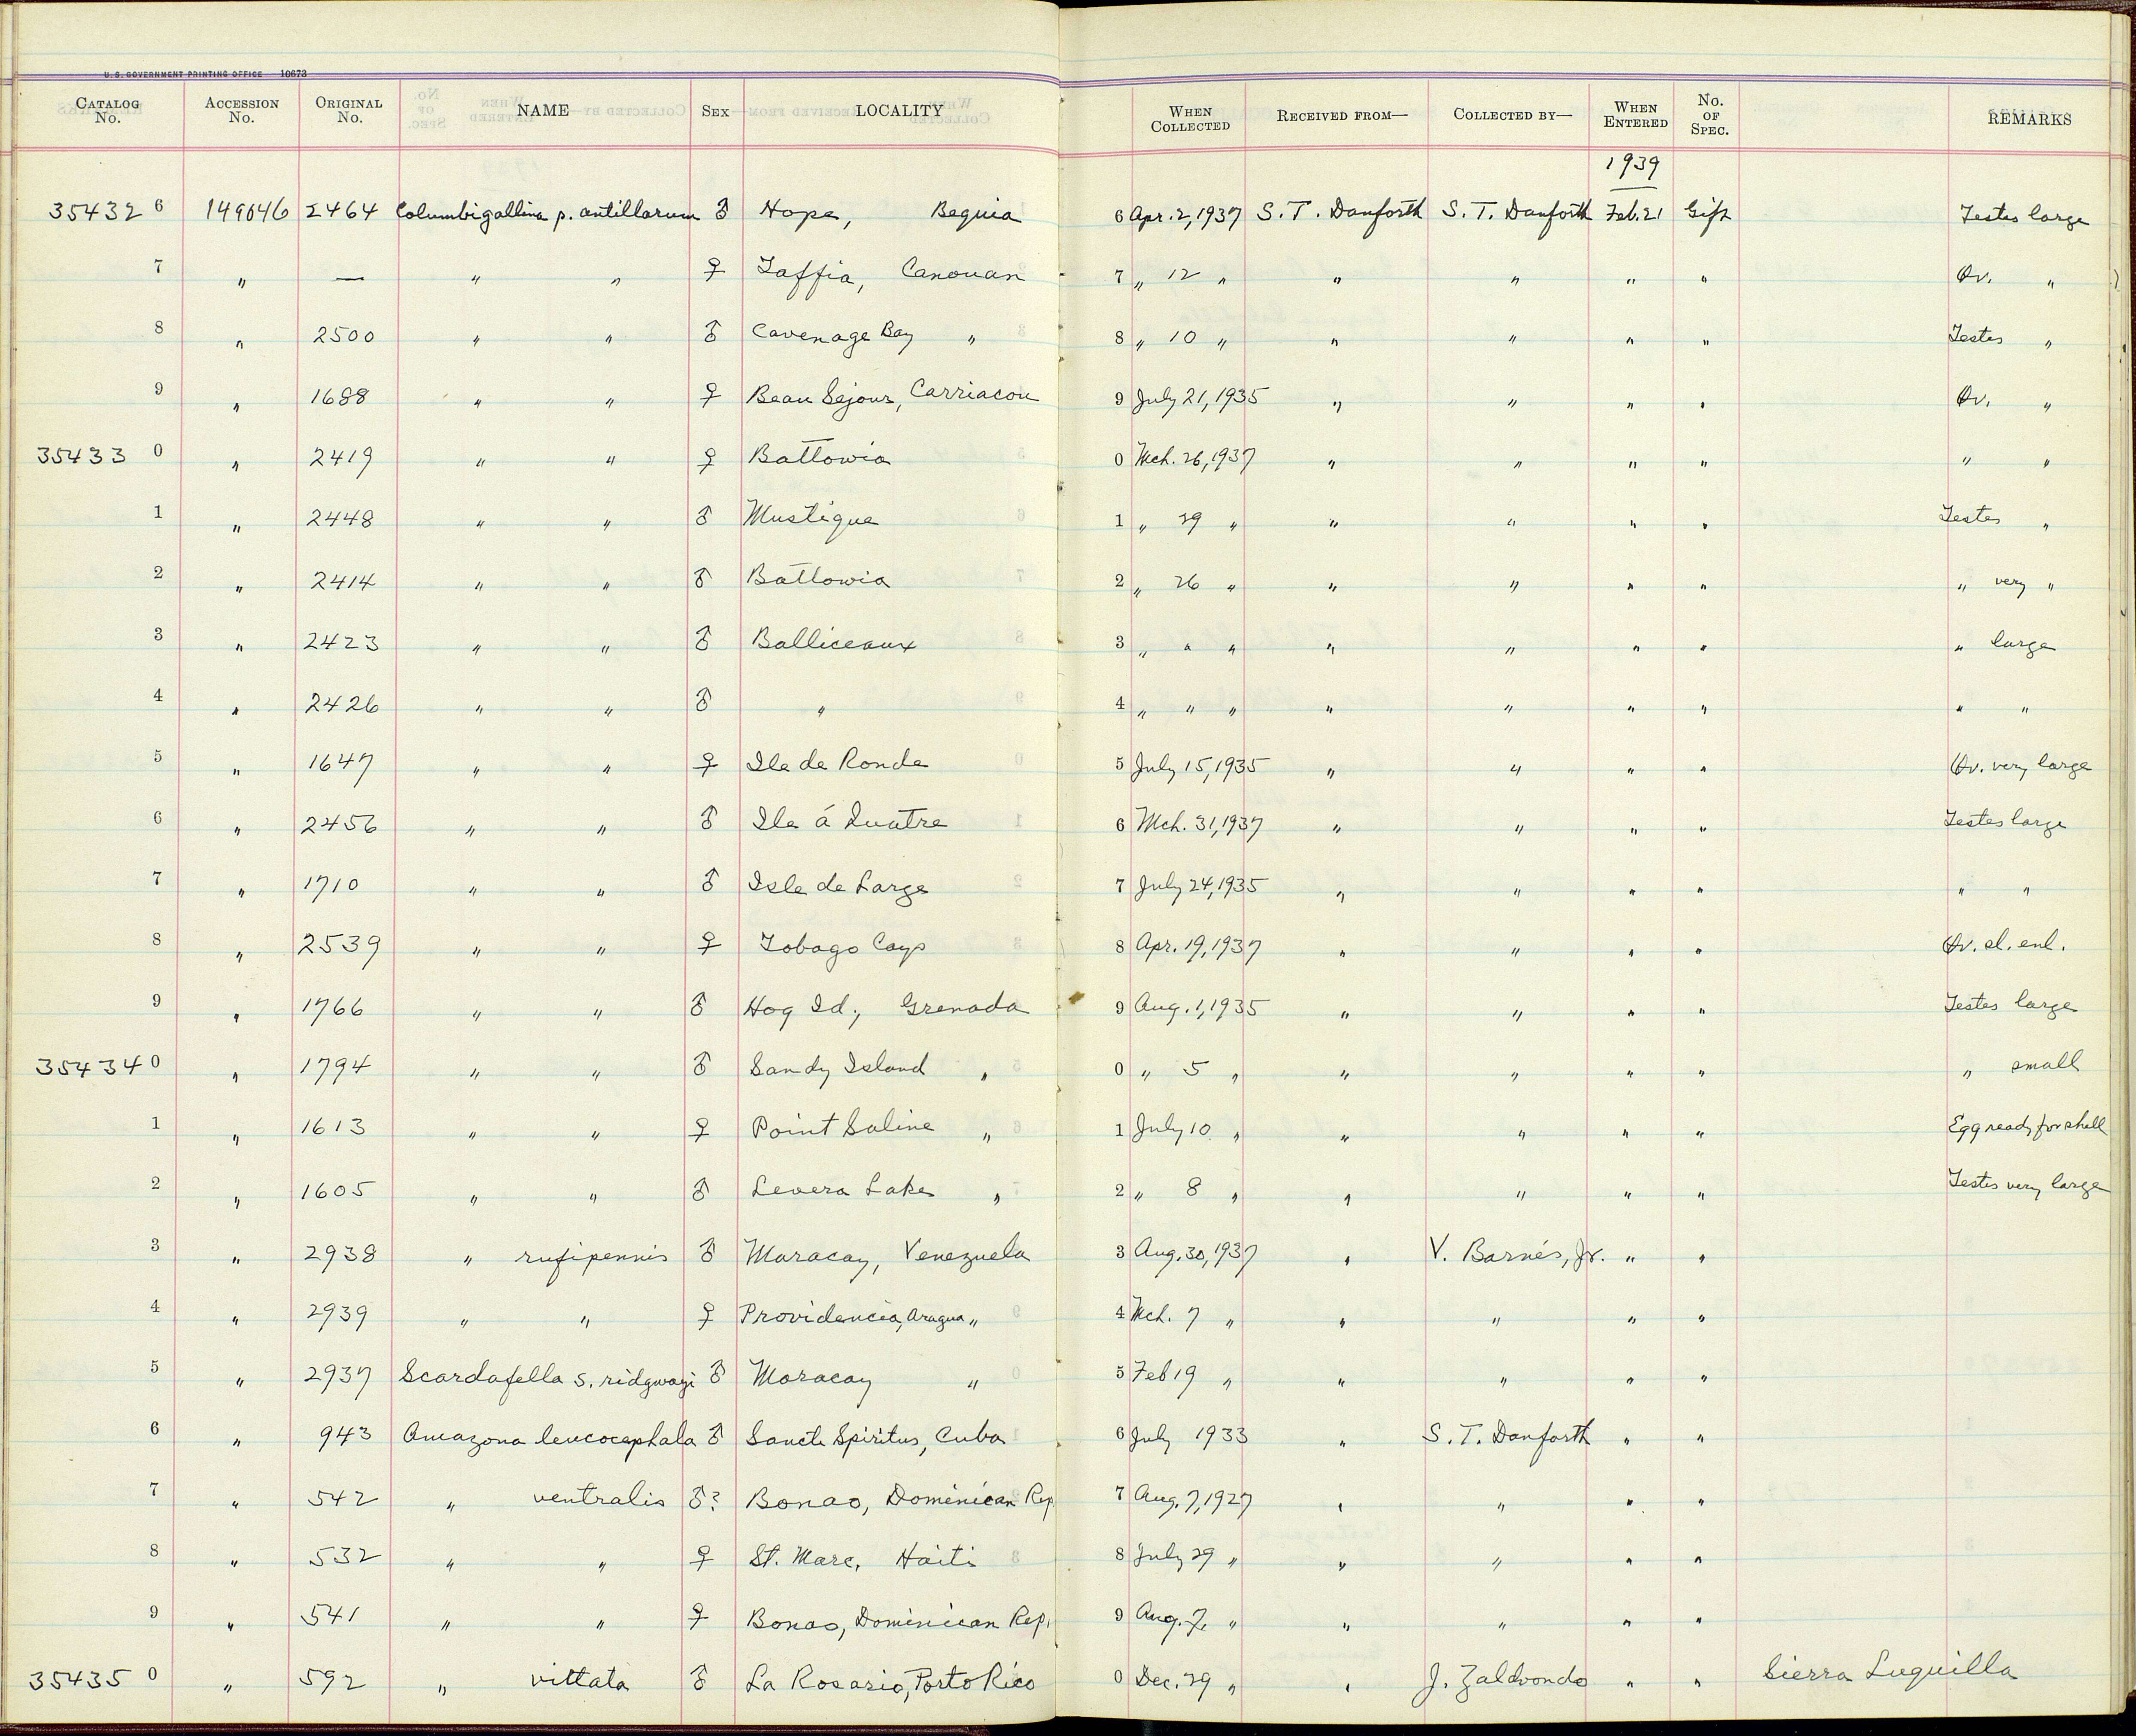 U.S. GOVERNMENT PRINTING OFFICE 10673
CATALOG No. ACCESSION No. ORIGINAL No. NAME SEX LOCALITY WHEN COLLECTED RECEIVED FROM— COLLECTED BY— WHEN ENTERED No. OF SPEC. REMARKS
1939
35432 6 149646 2464 Columbigallina p. antillarum ♂ Hope, Bequia 6 Apr. 2, 1937 S. T. Danforth S. T. Danforth Feb. 21 Gift Testes large
7 " — " " ♀ Taffia, Canouan 7 " 12 " " " " " Ov. "
8 " 2500 " " ♂ Cavenage Bay " 8 " 10 " " " " " Testes "
9 " 1688 " " ♀ Beau Sejour, Carriacou 9 July 21, 1935 " " " " Ov. "
35433 0 " 2419 " " ♀ Battowia 0 Mch. 26, 1937 " " " " " "
1 " 2448 " " ♂ Mustique 1 " 29 " " " " " Testes "
2 " 2414 " " ♂ Battowia 2 " 26 " " " " " " very "
3 " 2423 " " ♂ Balliceaux 3 " " " " " " " " large
4 " 2426 " " ♂ " 4 " " " " " " " " "
5 " 1647 " " ♀ Ile de Ronde 5 July 15, 1935 " " " " Ov. very large
6 " 2456 " " ♂ Ile á Quatre 6 Mch. 31, 1937 " " " " Testes large
7 " 1710 " " ♂ Isle de Large 7 July 24, 1935 " " " " " "
8 " 2539 " " ♀ Tobago Cays 8 Apr. 19, 1937 " " " " Ov. sl. enl.
9 " 1766 " " ♂ Hog Id., Grenada 9 Aug. 1, 1935 " " " " Testes large
35434 0 " 1794 " " ♂ Sandy Island " 0 " 5 " " " " " " small
1 " 1613 " " ♀ Point Saline " 1 July 10 " " " " " Egg ready for shell
2 " 1605 " " ♂ Levera Lake " 2 " 8 " " " " " Testes very large
3 " 2938 " rufipennis ♂ Maracay, Venezuela 3 Aug. 30, 1937 " V. Barnés, Jr. " "
4 " 2939 " " ♀ Providencia, Aragua " 4 Mch. 7 " " " " "
5 " 2937 Scardafella s. ridgwayi ♂ Maracay " 5 Feb 19 " " " " "
6 " 943 Amazona leucocephala ♂ Sancte Spiritus, Cuba 6 July 1933 " S. T. Danforth " "
7 " 542 " ventralis ♂? Bonao, Dominican Rep. 7 Aug. 7, 1927 " " " "
8 " 532 " " ♀ St. Marc, Haiti 8 July 29 " " " " "
9 " 541 " " ♀ Bonao, Dominican Rep. 9 Aug. 7, " " " " "
35435 0 " 592 " vittata ♂ La Rosario, Porto Rico 0 Dec. 29 " " J. Zaldvondo " " Sierra Luquilla